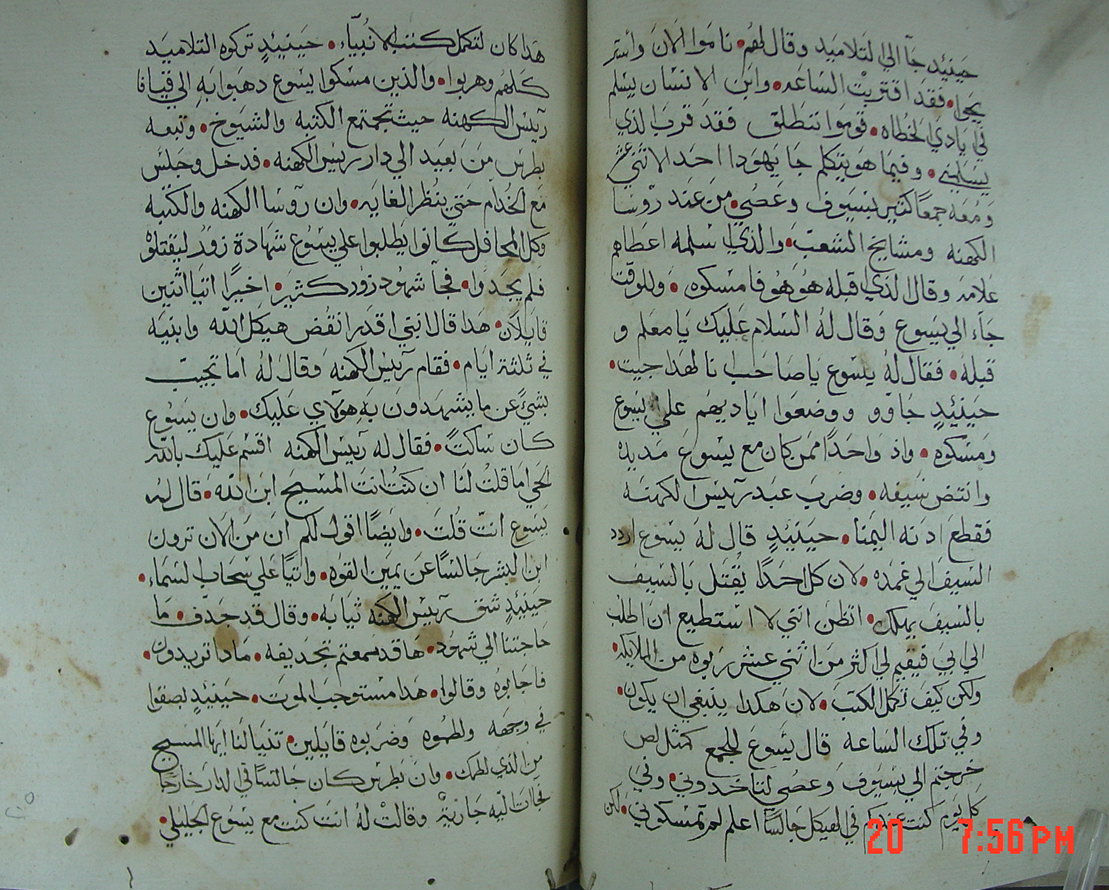 حينيد جآ الي التلاميد وقال لهم • ناموا الان واستر
يحوا • فقد اقتربت الساعه • وابن الانسان يسلم
في يادي الخطاه • قوموا ننطلق فقد قرب الذي
يسلمني • وفيما هو يتكلم جا يهودا احد الاثني عشر
ومعه جمعا كثير بسيوف وعصي • من عند روسا
الكهنه ومشايخ الشعب • والذي اسلمه اعطاهم
علامه وقال الذي اقبله هو هو فامسكوه • وللوقت
جاء الي يسوع وقال له السلام عليك يا معلم و
قبله • فقال له يسوع يا صاحب نا لهذا جيت •
حينيدٍ جاوو ووضعوا اياديهم علي يسوع
ومسكوه • واد واحدا ممن كان مع يسوع مد يده
وانتض سيفه • وضرب عبد رييس الكهنه
فقطع ادنه اليمنا • حينيدٍ قال له يسوع اردد
السيف الي غمده • لان كل احدا يقتل بالسيف
بالسيف يهلك • اتظن انني لا استطيع ان اطلب
الي ابي فيقيم لي اكثر من اثني عشر ربوه من الملايكه •
ولكن كيف تكمل الكتب • لان هكدا ينبغي ان يكون •
وفي تلك الساعه قال يسوع للجمع كمثل لص
خرجتم الي بسيوف وعصي لتاخدوني • وفي
كل يوم كنت عندكم في الهيكل جالسًا اعلم لم تمسكوني • لكن
هدا كان لتكمل كتب الانبيآء • حينيدٍ تركوه التلاميد
كلهم وهربوا • والدين مسكوا يسوع دهبوا به الي قيافا
رييس الكهنه حيث تجتمع الكتبه والشيوخ • وتبعه
بطرس من بعيد الي دار رييس الكهنه • فدخل وجلس
مع الخدام حتي ينظر الغايه • وان روسا الكهنه والكتبه
وكل المحافل كانوا يطلبوا علي يسوع شهادة زور ليقتلوه
فلم يجدوا • فجآ شهود زور كثير • اخيرًا اتيا اثنين
قايلان • هدا قال انني اقدر انقض هيكل الله وابنيه
في ثلثة ايام • فقام رييس الكهنه وقال له اما تجيب
بشيءٍ عن ما يشهدون به هولاي عليك • وان يسوع
كان ساكتًا • فقال له رييس الكهنه اقسم عليك بالله
الحي اما قلت لنا ان كنت انت المسيح ابن الله • قال له
يسوع انت قلت • وايضًا اقول لكم ان من الان ترون
ابن البشر جالسًا عن يمين القوه • واتيًا علي سحاب السماء •
حينيدٍ شق رييس الكهنه ثيابه • وقال قد جدف • ما
حاجتنا الي شهود • ها قد سمعتم تجديفه • مادا تريدون •
فاجابوه وقالوا • هدا مستوجب الموت • حينيدٍ بصقوا
في وجهه ولطموه وضربوه قايلين • تنبا لنا ايها المسيح
من الذي لطمك • وان بطرس كان جالسًا في الدار خارجا
فجات اليه جارية وقالت له انت كنت مع يسوع الجليلي •
20 7:56 PM